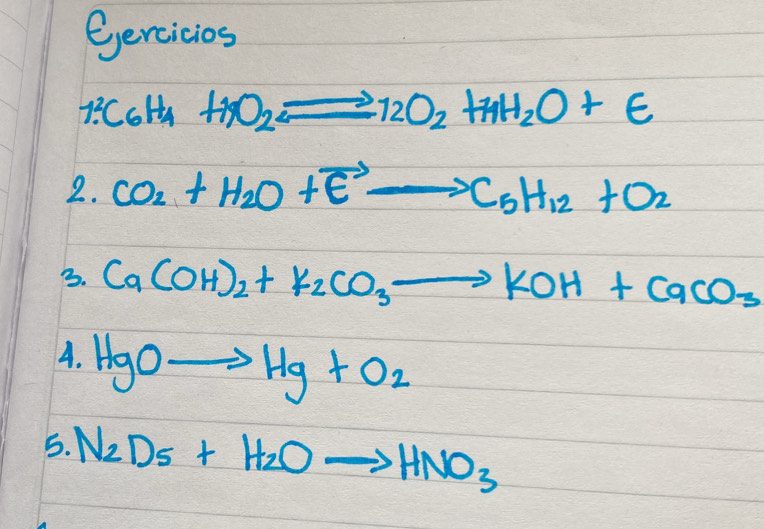 Ejercicios
1. 2C6H4 + 19O2 ⇌ 12O2 + 14H2O + E
2. CO2 + H2O + E → C5H12 + O2
3. Ca(OH)2 + K2CO3 → KOH + CaCO3
4. HgO → Hg + O2
5. N2D5 + H2O → HNO3